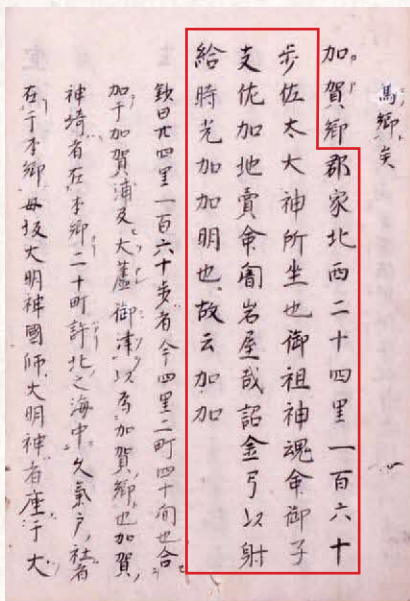 馬郷矣
加賀郷郡家北西二十四里一百六十
歩佐太大神所坐也御祖神魂命御子
支佐加地賣命闇岩屋哉詔金弓以射
給時光加加明也故云加加
欽曰北四里一百六十歩者今四里二町四十間也合
加于加賀浦及大蘆御津以為加賀郷也加賀
神埼者在本郷二十町許北之海中久氣戸社者
在于本郷毋坂大明神國師大明神者座于大